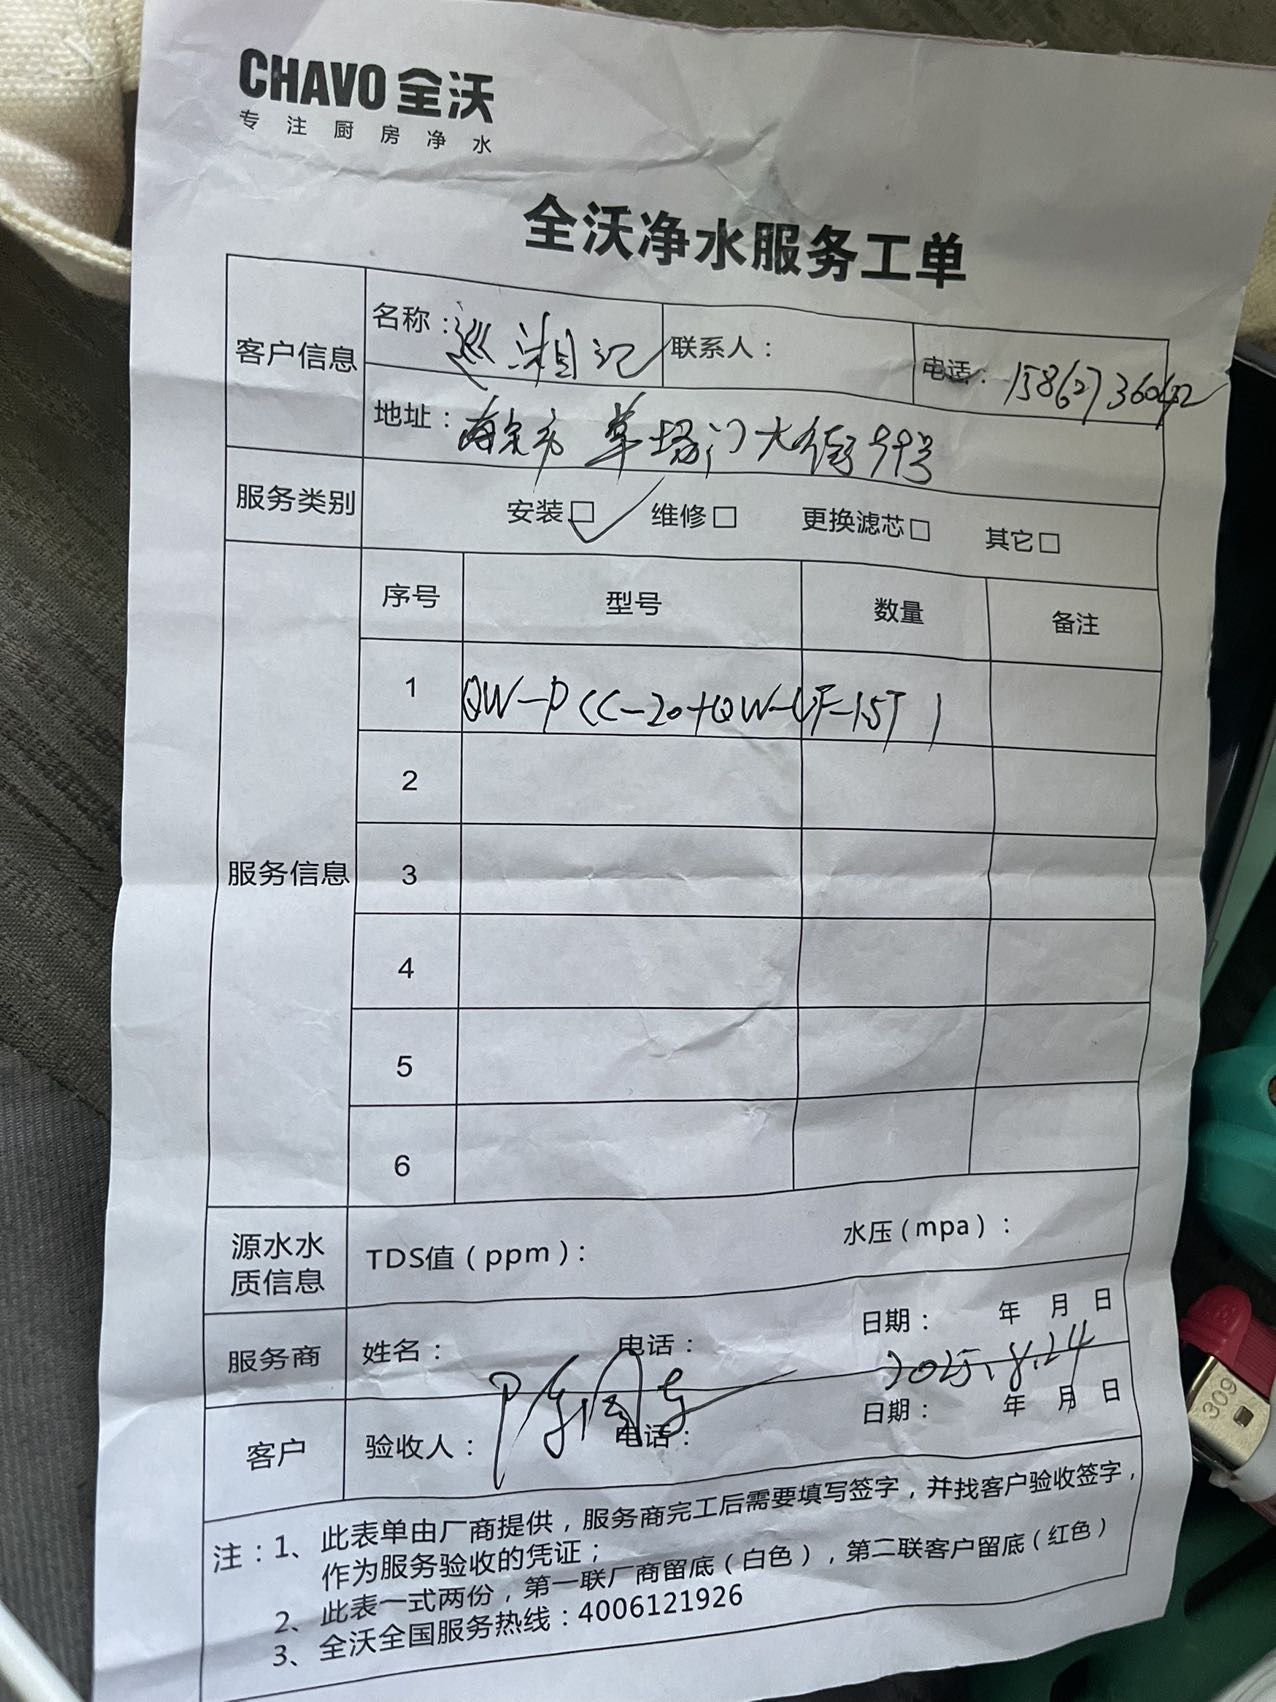 CHAVO 全沃
专注厨房净水
全沃净水服务工单
客户信息
名称：巡湘记
联系人：
电话：
地址：南京市草场门大街99号
服务类别
安装☑ 维修□ 更换滤芯□ 其它□
服务信息
序号 型号 数量 备注
1 QW-PCC-20+QW-UF-1.5T 1
2
3
4
5
6
源水水质信息
TDS值（ppm）： 水压（mpa）：
服务商 姓名： 电话： 日期： 年 月 日
2025.8.24
客户 验收人： 电话： 日期： 年 月 日
注：1、此表单由厂商提供，服务商完工后需要填写签字，并找客户验收签字，
作为服务验收的凭证；
2、此表一式两份，第一联厂商留底（白色），第二联客户留底（红色）
3、全沃全国服务热线：4006121926
309